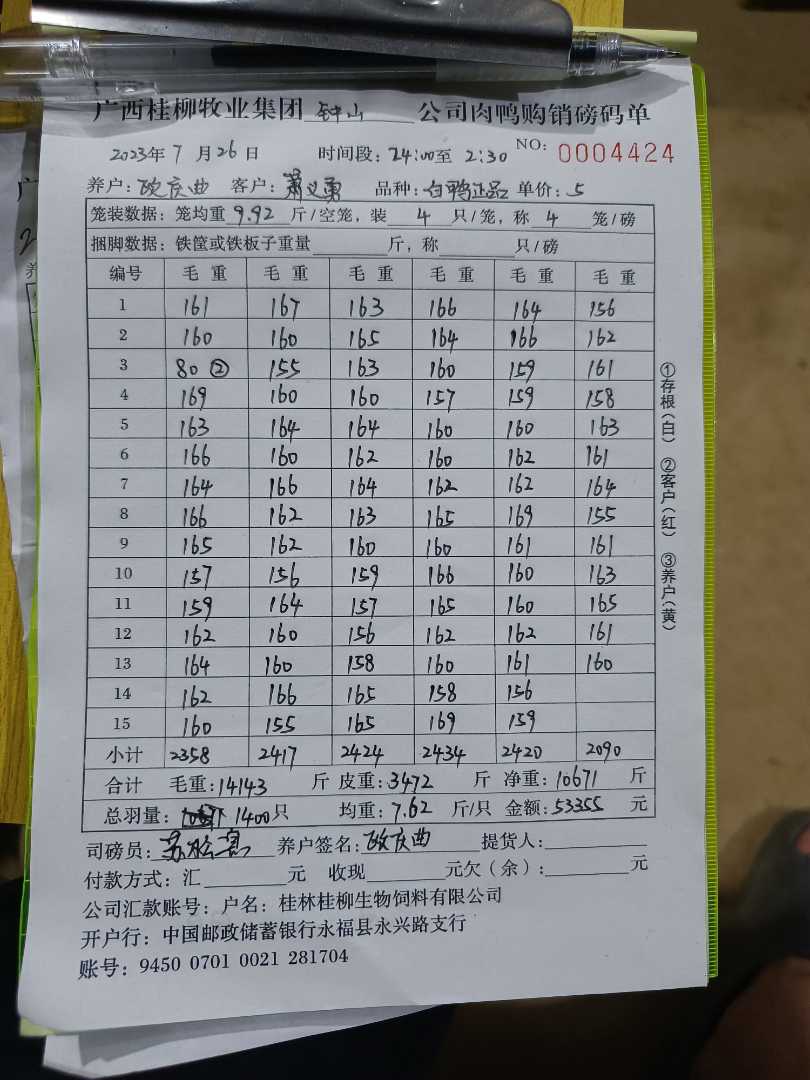 广西桂柳牧业集团 钟山 公司肉鸭购销磅码单
2023年 7 月 26 日 时间段: 24:00至 2:30 NO: 0004424
养户: 欧庆曲 客户: 萧义勇 品种: 白鸭正品 单价: 5
笼装数据: 笼均重 9.92 斤/空笼, 装 4 只/笼, 称 4 笼/磅
捆脚数据: 铁筐或铁板子重量 斤, 称 只/磅
编号 毛重 毛重 毛重 毛重 毛重 毛重
1 161 167 163 166 164 156
2 160 160 165 164 166 162
3 80 ② 155 163 160 159 161
4 169 160 160 157 159 158
5 163 164 164 160 160 163
6 166 160 162 160 162 161
7 164 166 164 162 162 164
8 166 162 163 165 169 155
9 165 162 160 160 161 161
10 157 156 159 166 160 163
11 159 164 157 165 160 165
12 162 160 156 162 162 161
13 164 160 158 160 161 160
14 162 166 165 158 156
15 160 155 165 169 159
小计 2358 2417 2424 2434 2420 2090
合计 毛重: 14143 斤 皮重: 3472 斤 净重: 10671 斤
总羽量: 1400只 均重: 7.62 斤/只 金额: 53355 元
司磅员: 养户签名: 欧庆曲 提货人:
付款方式: 汇 元 收现 元欠(余): 元
公司汇款账号: 户名: 桂林桂柳生物饲料有限公司
开户行: 中国邮政储蓄银行永福县永兴路支行
账号: 9450 0701 0021 281704
①存根(白) ②客户(红) ③养户(黄)